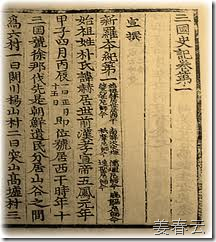 三國史記卷第一
宣撰
新羅本紀第一
始祖姓朴氏諱赫居世前漢孝宣帝五鳳元年
甲子四月丙辰一曰正月十五日即位號居西干時年十
三國號徐那伐先是朝鮮遺民分居山谷之間
爲六村一曰閼川楊山村二曰突山高墟村三
姜春云